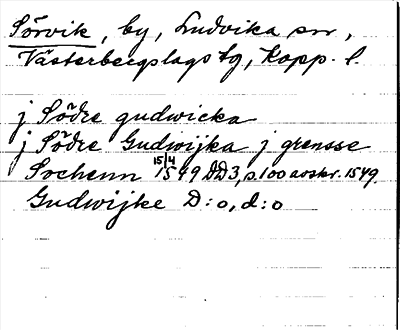 Sörvik, by, Ludvika sn,
Västerbergslags tg, Kopp. l.
j Södre gudwicka
j Södre Gudwijka j grensse
Sochenn 15/4 1549 DD3, s.100 avskr. 1549.
Gudwijke D:o, d:o